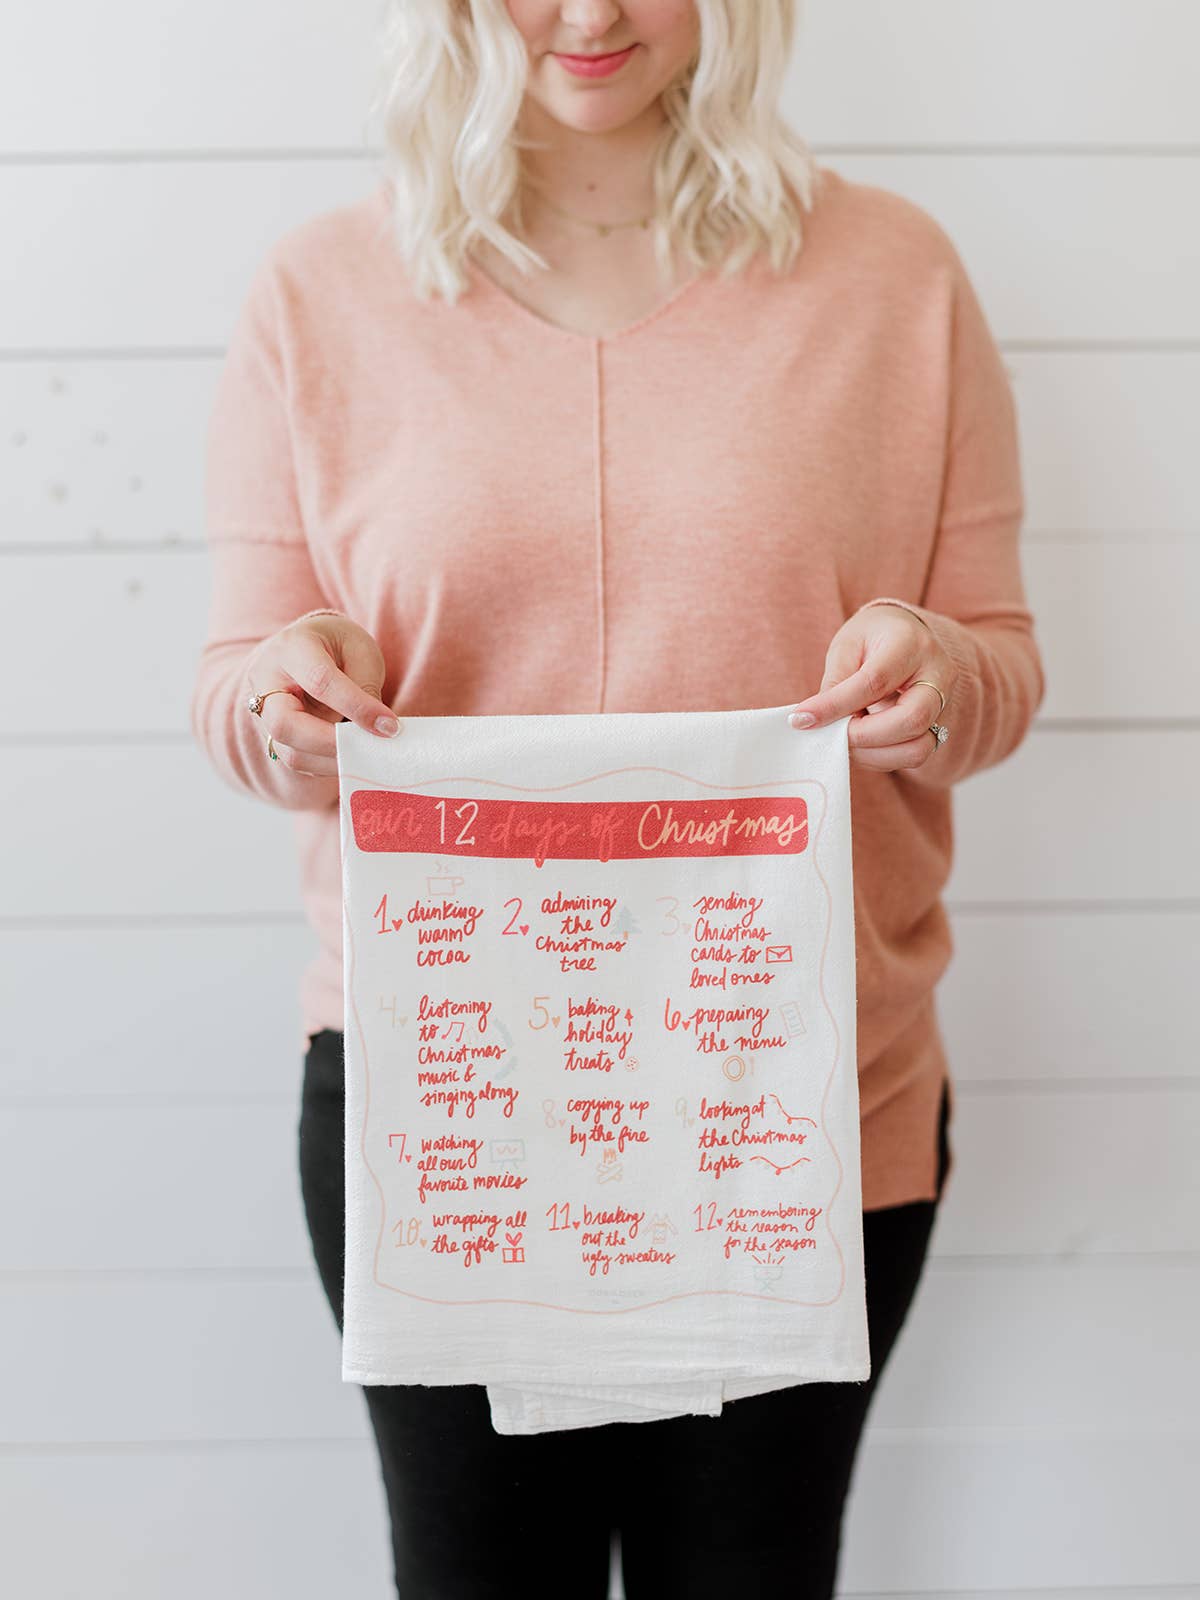 our 12 days of Christmas
1. drinking
warm
cocoa
2. admiring
the
Christmas
tree
3. sending
Christmas
cards to
loved ones
4. listening
to
Christmas
music &
singing along
5. baking
holiday
treats
6. preparing
the menu
7. watching
all our
favorite movies
8. cozying up
by the fire
9. looking at
the Christmas
lights
10. wrapping all
the gifts
11. breaking
out the
ugly sweaters
12. remembering
the reason
for the season